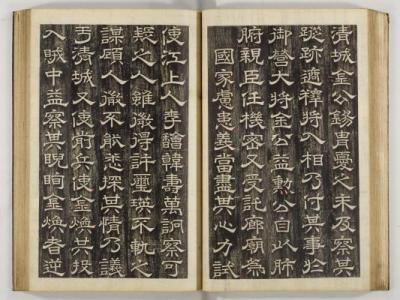 清城金公錫胄憂之未及察其
蹤跡適釋將入相乃付其事於
御營大將金公益勳公自以肺
腑親臣任機密又受託廊廟爲
國家慮患義當盡其心力試
使江上人李譮韓壽萬詗察可
疑之人雖微得許璽瑛不軌之
謀顧人微不能悉探其情乃議
于清城又使前兵使金煥其投
入賊中益察其金煥者逆